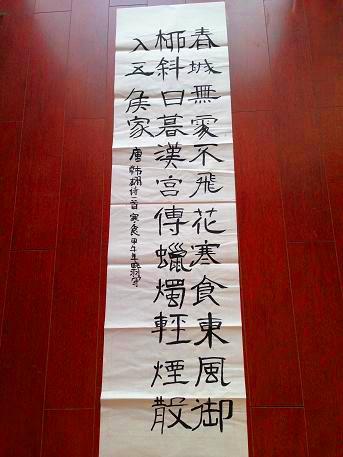 春城無處不飛花寒食東風御
柳斜日暮漢宮傳蠟燭輕煙散
入五侯家
唐韩翃诗一首寒食甲午年